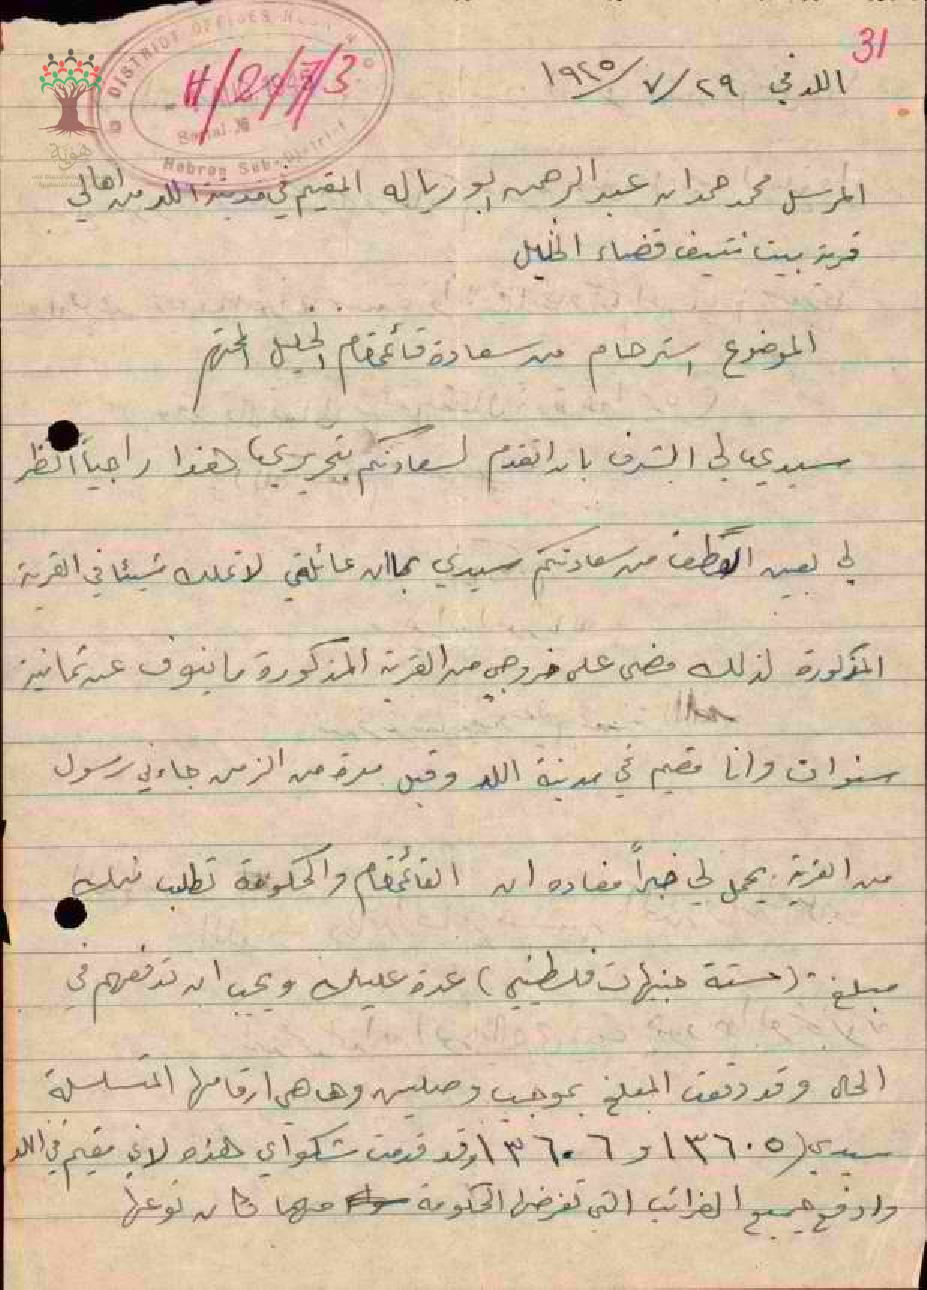 31
DISTRICT OFFICES HEBRON
H/2/7/3
Serial №
Hebron Sub-District
هوية
اللد في ٢٩/٧/١٩٤٥
المرسل محمد حمدان عبد الرحمن ابو رياله المقيم في مدينة اللد من اهالي
قرية بيت نتيف قضاء الخليل
الموضوع استرحام من سعادة قائمقام الخليل المحترم
سيدي لي الشرف بان اتقدم لسعادتكم بتحريري هذا راجياً النظر
لي بعين العطف من سعادتكم سيدي بما ان عائلتي لا تملك شيئا في القرية
المذكورة لذلك مضى على خروجي من القرية المذكورة ما ينوف عن ثمانية
سنوات وانا مقيم في مدينة اللد وقبل مدة من الزمن جاءني رسول
من القرية يحمل لي خبراً مفاده ان القائمقام والحكومة تطلب منك
مبلغ (ستة جنيهات فلسطيني) عدة عليك ويجب ان تدفعهم في
الحال وقد دفعت المبلغ بموجب وصلين وها هي ارقامها المتسلسلة
سيدي (١٣٦٠٥ و ١٣٦٠٦) وقد قدمت شكواي هذه لاني مقيم في اللد
وادفع جميع الضرائب التي تفرضها الحكومة مهما كان نوعها